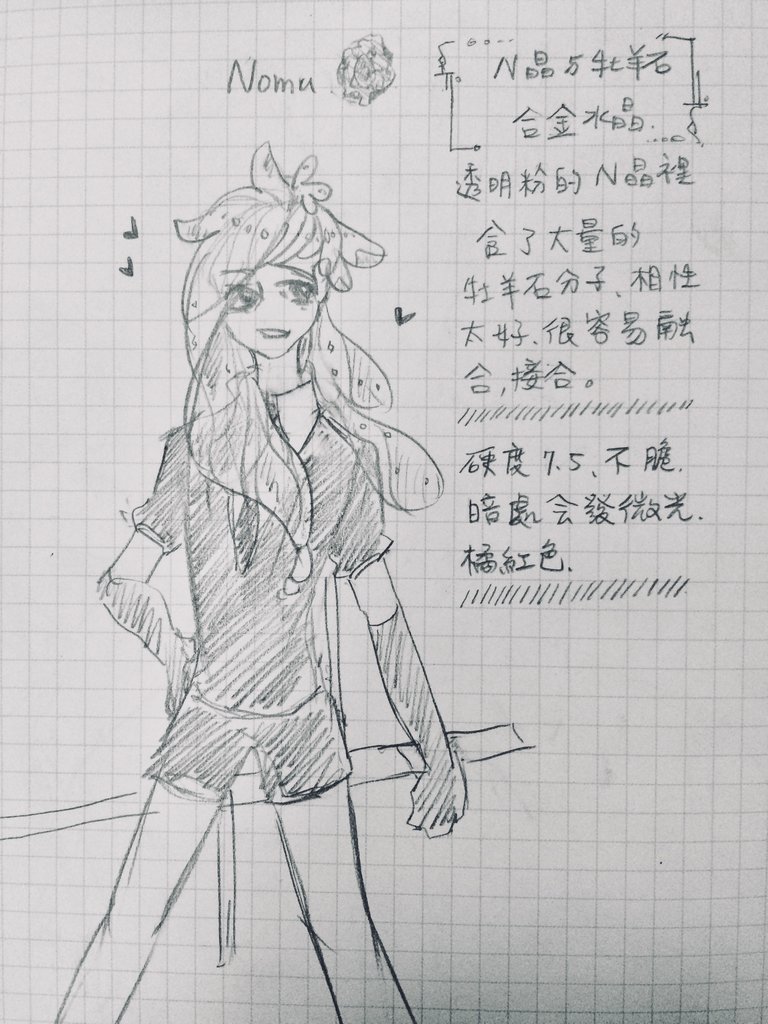 Nomu
N晶与牡羊石
合金水晶.
透明粉的N晶裡
含了大量的
牡羊石分子、相性
太好、很容易融
合,接合。
硬度7.5、不脆.
暗處会發微光.
橘紅色.